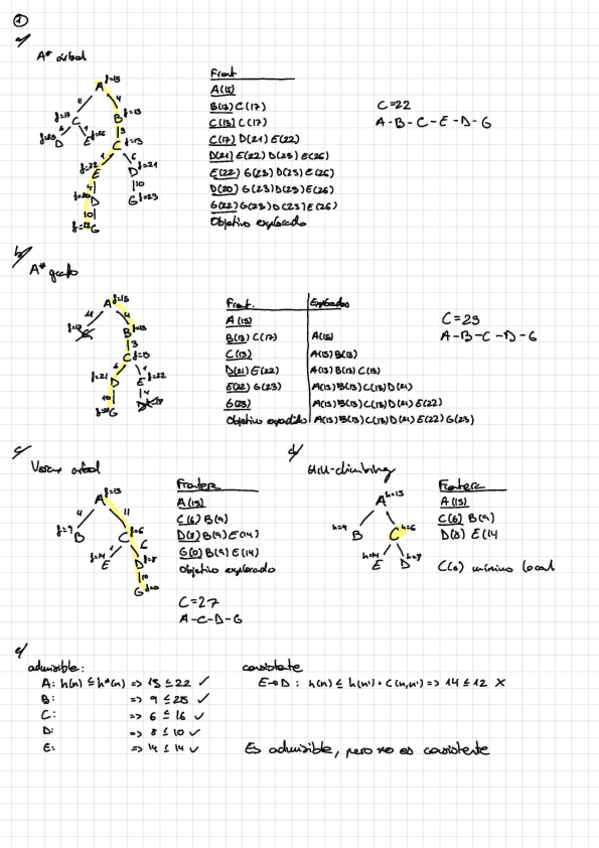 1
a)
A* árbol
Front
A(15)
B(13) C(17)
C(13) C(17)
C(17) D(21) E(22)
D(21) E(22) D(25) E(26)
E(22) G(23) D(25) E(26)
D(20) G(23) D(25) E(26)
G(22) G(23) D(25) E(26)
Objetivo explorado
C=22
A-B-C-E-D-G
A f=15
11
4
f=17 C
B f=13
3
D
E f=26
C f=13
f=22
1
6
E
D f=21
4
10
D
G f=23
10
G
b)
A* grafo
Front.
Explorados
A(15)
B(13) C(17)
A(15)
C(13)
A(15) B(13)
D(21) E(22)
A(15) B(13) C(13)
E(22) G(23)
A(15) B(13) C(13) D(21)
G(23)
A(15) B(13) C(13) D(21) E(22)
Objetivo expandido
A(15) B(13) C(13) D(21) E(22) G(23)
C=23
A-B-C-D-G
A f=15
4
B f=13
3
C f=13
f=21
6
1
D
E f=22
10
4
G
c)
Voraz árbol
Frontera
A(15)
C(6) B(9)
D(8) B(9) E(14)
G(0) B(9) E(14)
Objetivo explorado
C=27
A-C-D-G
A f=15
4
11
f=9
B
C f=6
f=14
1
6
E
D f=8
10
G f=0
d)
Hill-climbing
Frontera
A(15)
C(6) B(9)
D(8) E(14
C(6) mínimo local
A h=15
h=9
B
C h=6
h=14
E
D h=8
e)
admisible:
A: h(n) ≤ h*(n) => 15 ≤ 22 ✓
B: => 9 ≤ 25 ✓
C: => 6 ≤ 16 ✓
D: => 8 ≤ 10 ✓
E: => 14 ≤ 14 ✓
consistente
E→D: h(n) ≤ h(n') + C(n,n') => 14 ≤ 12 X
Es admisible, pero no es consistente